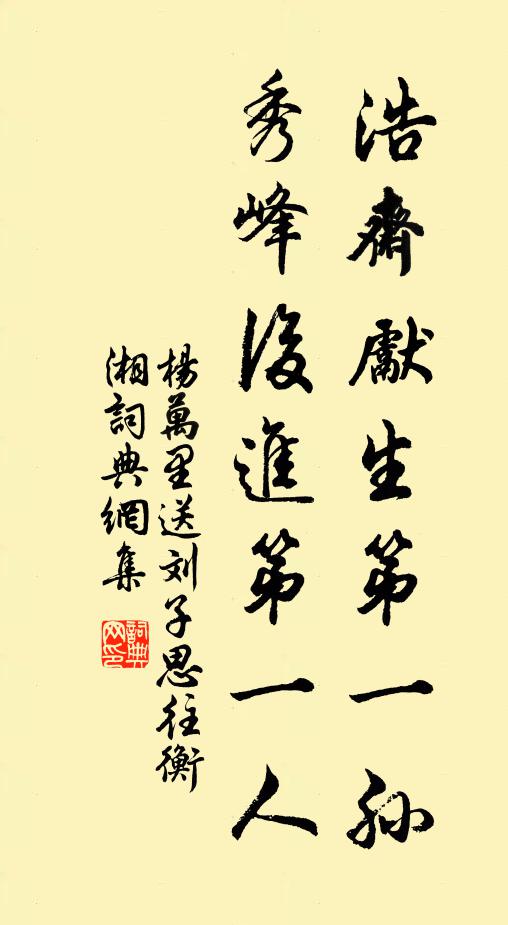 浩齋獻生第一孫
秀峰後進第一人
楊萬里送刘子思往衡
湘詞典網集
詞典网印